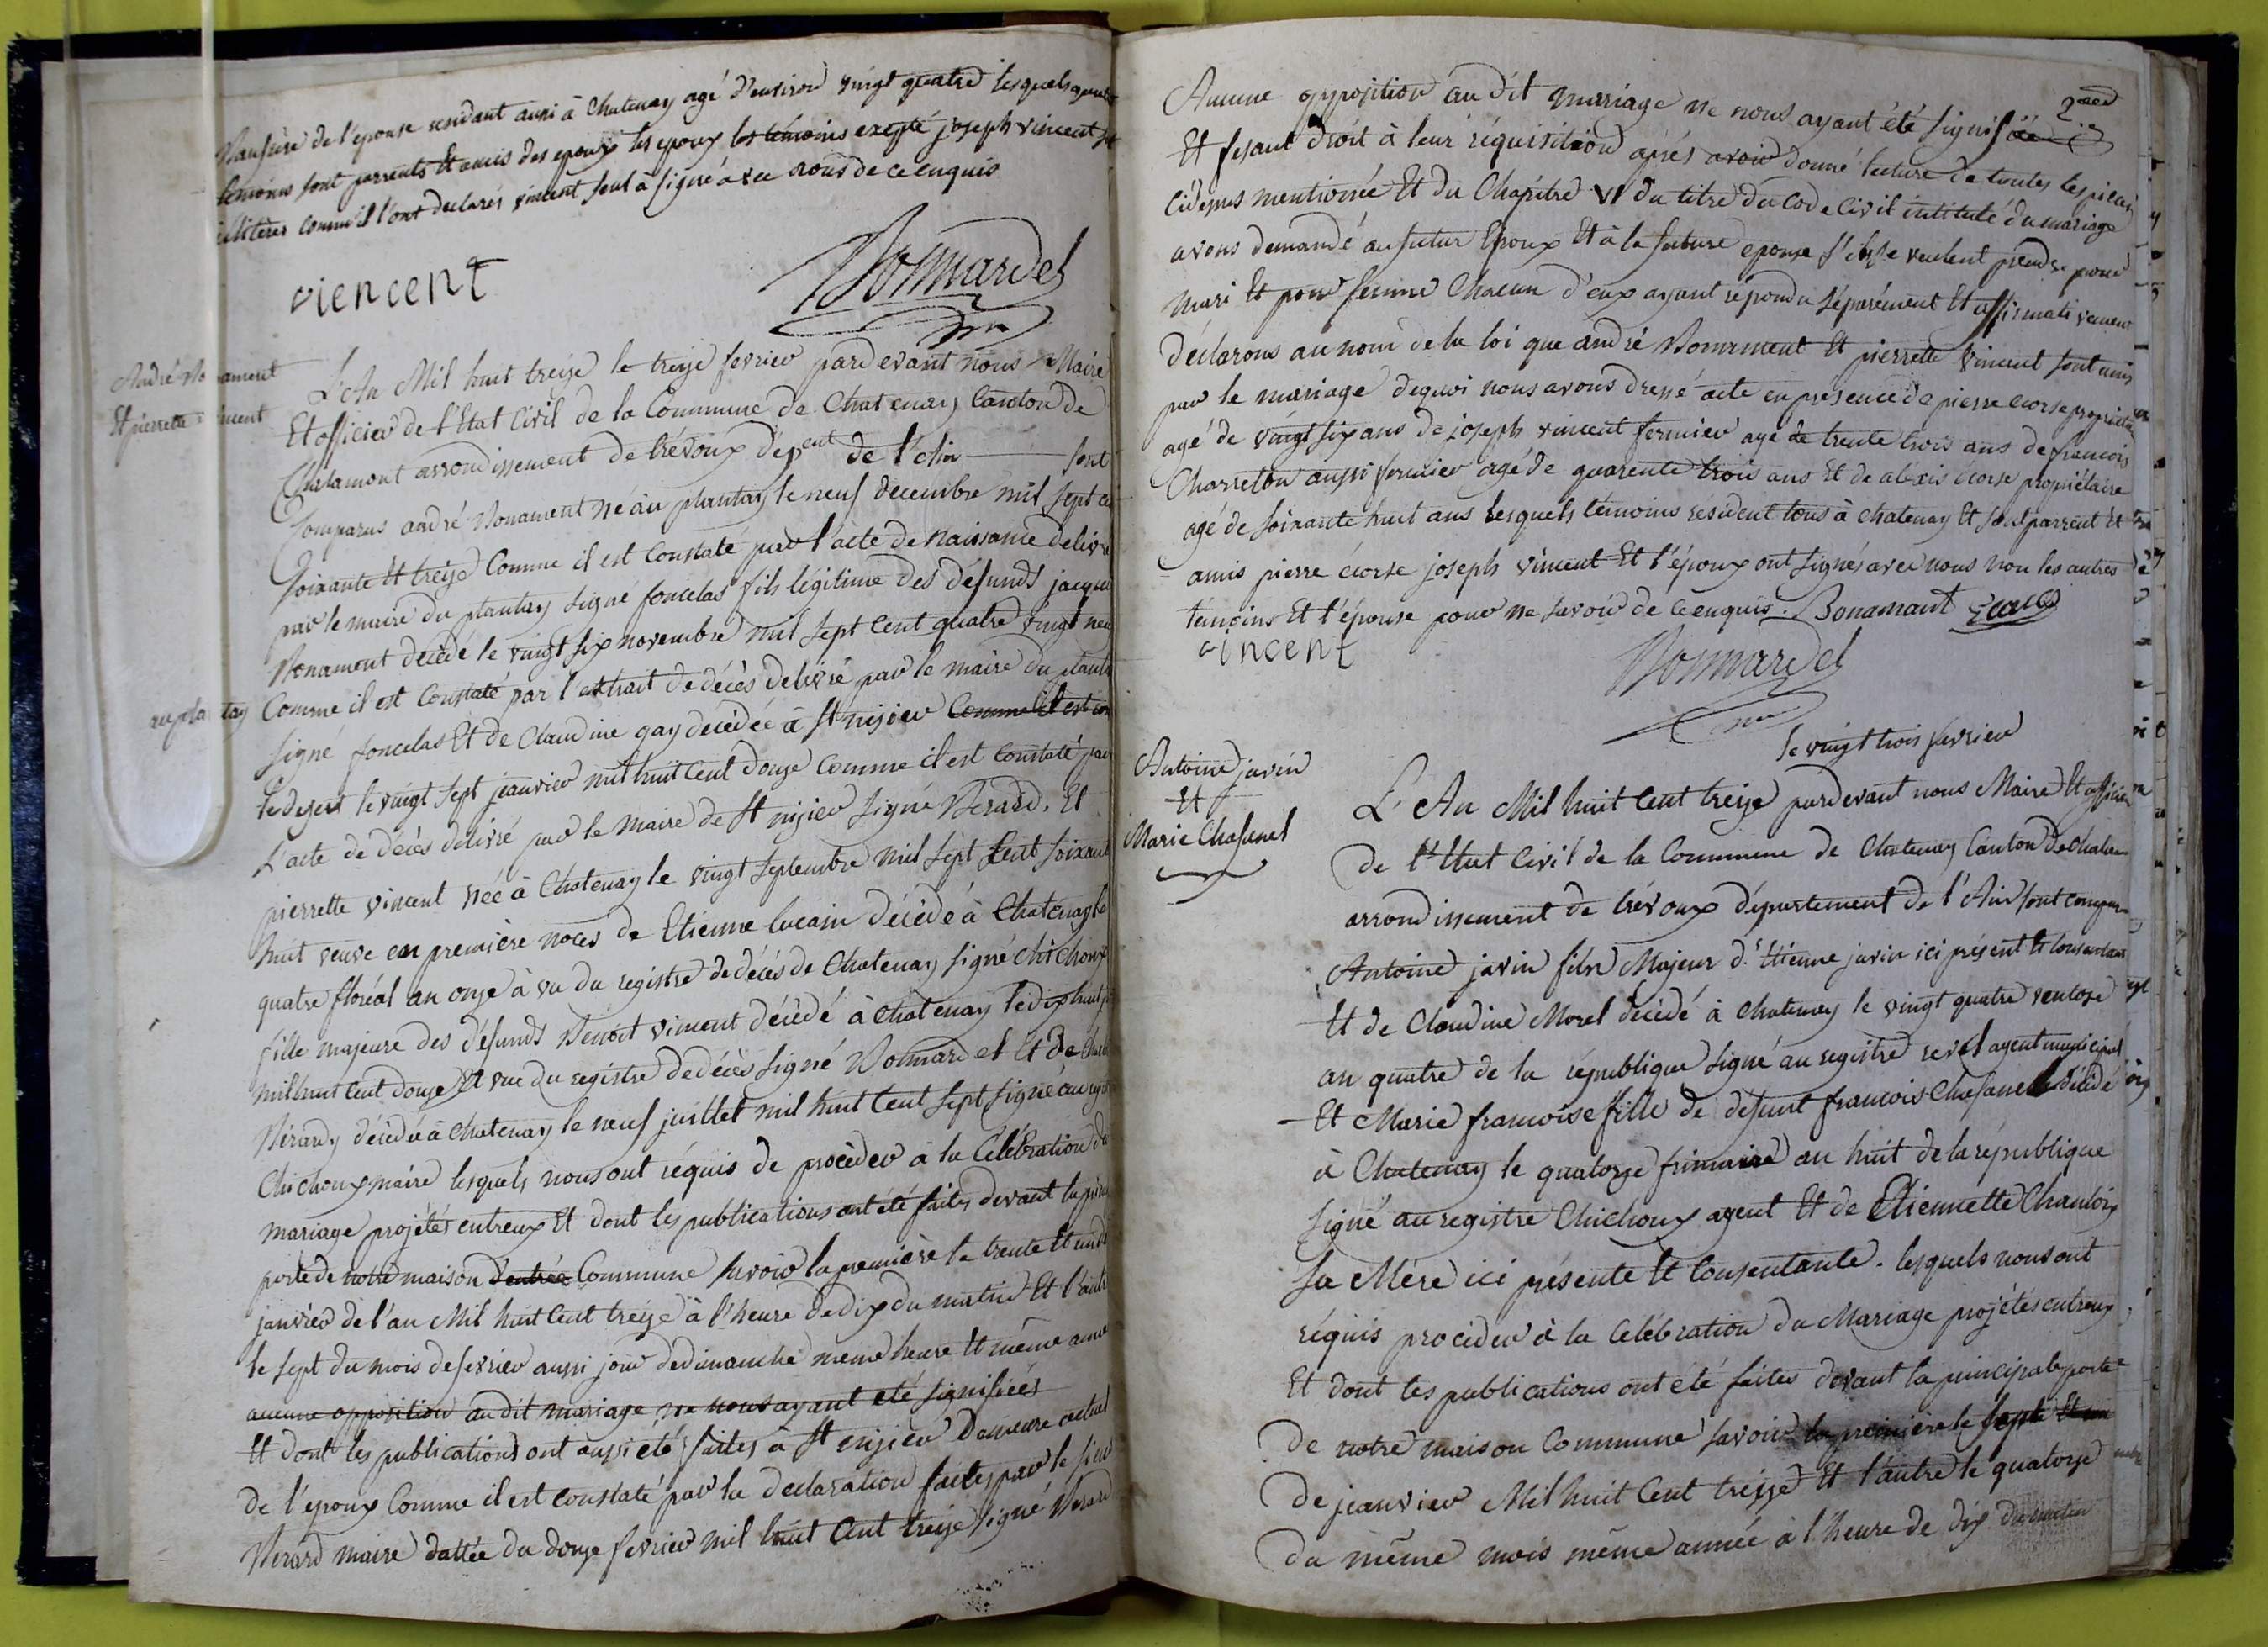 Beaufrère de l'épouse residant aussi à Chatenay agé d'environ vingt quatre lesquels quatre
temoins sont parrents Et amis des epoux les epoux les témoins exepté joseph vincent
illitères comme il l'ont declarés vincent seul à signé avec nous de ce enquis
viencent
Bonnardel
André Bonament
Et pierrette vincent
L'An Mil huit treize le treize fevrier pardevant nous Maire
Et officier de l'Etat Civil de la Commune de Chatenay Canton de
Chalamont arrondissement de trévoux dépent de l'Ain sont
Comparus andré Bonament né au plantay le neuf decembre mil sept cent
Soixante Et treize Comme il est Constaté par l'acte de Naissance delivré
par le maire du plantay signé foncelas fils légitime des défunds jacques
Bonament decédé le vingt six novembre mil sept Cent quatre vingt neuf
au plantay Comme il est Constaté par l'extrait de décès delivré par le maire du plantay
signé foncelas Et de Claudine gay decédée à St nizier Comme il est
le desert le vingt sept jeanvier mil huit Cent douze Comme il est Constaté par
L'acte de décès délivré par le Maire de St nizier signé Berard. Et
pierrette vincent née à Chatenay le vingt Septembre mil sept Cent soixante
huit veuve en première noces de Etienne lucain décédé à Chatenay le
quatre floréal an onze à vu du registre de décès de Chatenay signé Chichoux
fille majeure des défunds Benoit vincent décédé à Chatenay le dix huit
mil huit Cent douze Et vue du registre de décès signé Bonnardel Et de
Bérard décédée à Chatenay le neuf juillet mil huit Cent sept signé au registre
Chichoux maire lesquels nous ont réquis de procèder à la Célébration du
mariage projétés entreux Et dont les publications ont été faites devant la
porte de notre maison d'entrée Commune savoir la première le trente Et un
janvier de l'an Mil huit Cent treize à l'heure de dix du matin Et l'autre
le sept du mois de fevrier aussi jour de dimanche meme heure Et même année
aucune opposition au dit mariage ne nous ayant été signifiées
Et dont les publications ont aussi été faites à St nizier Demeure actuel
de l'epoux Comme il est constaté par la declaration faites par le sieur
Berard maire dattée du douze fevrier mil huit Cent treize signé Berard
Aucune opposition au dit mariage ne nous ayant été signifiée
Et fesant droit à leur réquisition après avoir donné lecture de toutes les pièces
cidesus mentionée Et du Chapitre VI du titre du Code Civil intitulé du mariage
avons demandé au futur Epoux Et à la future epouse s'ils se veulent prendre pour
Mari Et pour femme Chacun d'eux ayant répondu séparément Et affirmativement
déclarons au nom de la loi que andré Bonament Et pierrette vincent sont unis
par le mariage dequoi nous avons dressé acte en présence de pierre ecorse propriétaire
agé de vingt six ans de joseph vincent fermier agé de trente trois ans de francois
Charreton aussi fermier agé de quarente trois ans Et de aléxis écorse propriétaire
agé de soixante huit ans lesquels témoins résident tous à chatenay Et sont parrent Et
amis pierre écorse joseph vincent Et l'époux ont signés avec nous non les autres
témoins Et l'épouse pour ne savoir de ce enquis. Bonamant
vincent
Bonnardel
Antoine javin
Et
Marie Chasanel
le vingt trois fevrier
L'An Mil huit Cent treize pardevant nous Maire Et officier
de l'Etat Civil de la Commune de Chatenay Canton de Chalam
arrondissement de trévoux département de l'Ain sont comparu
Antoine javin fils Majeur d. Etienne javin ici présent Et Consentant
Et de Claudine Morel décédé à Chatenay le vingt quatre ventose
an quatre de la république signé au registre revel agent municipal
Et Marie francoise fille de defunt francois Chasanel décédé
à Chatenay le quatorze frimaire an huit de la république
signé au registre Chichoux agent Et de Etiennette Chanloix
sa Mère ici présente Et Consentante. lesquels nous ont
réquis proceder à la Célébration du Mariage projétés entreux
Et dont les publications ont été faites devant la principale porte
de notre maison Commune savoir la première le sept Et un
de jeanvier Mil huit Cent treize Et l'autre le quatorze
du même mois même année à l'heure de dix du matin